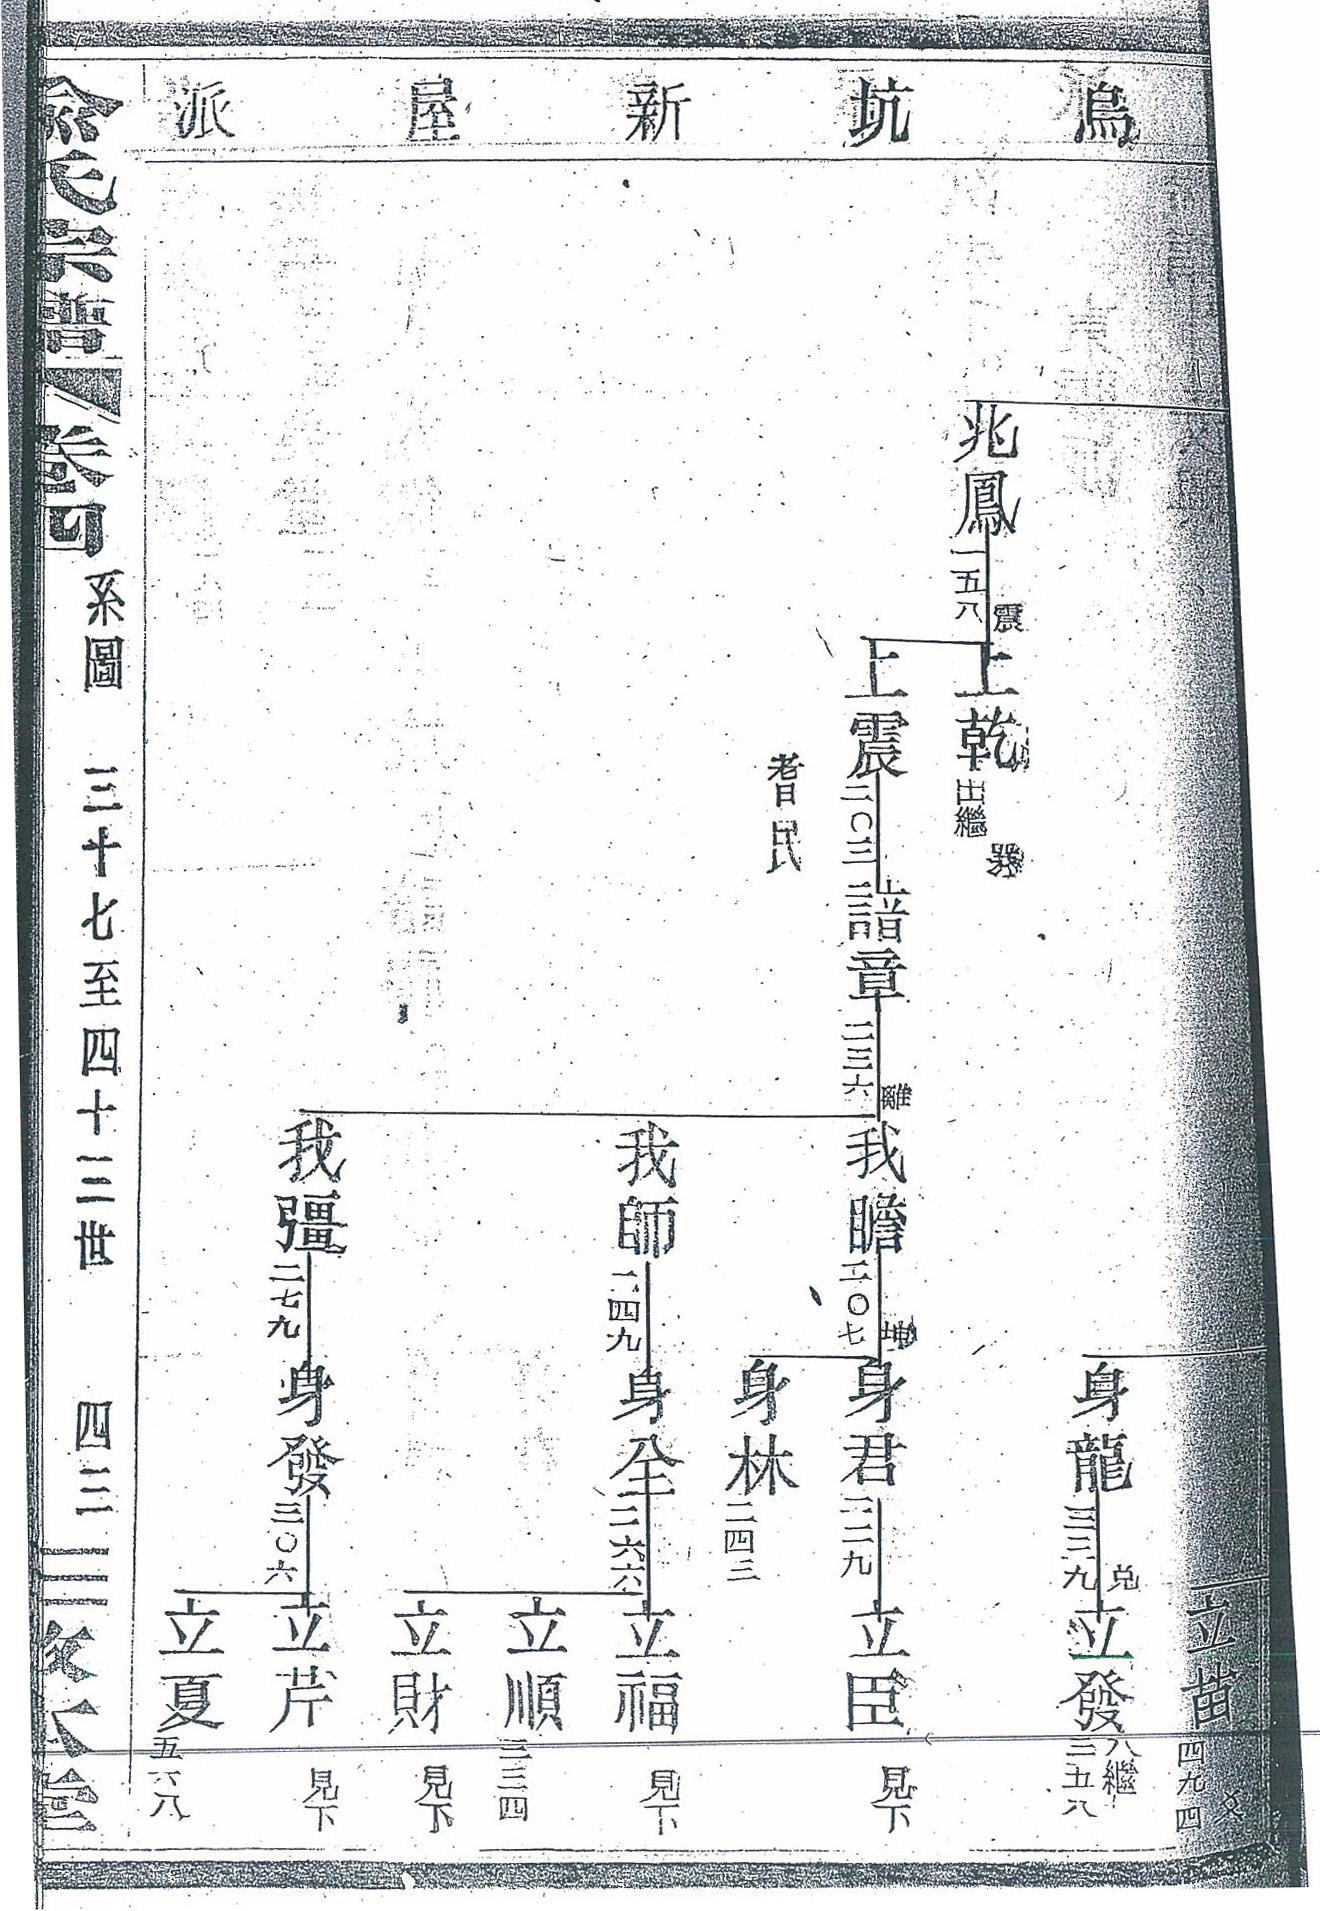 烏坑新屋派
立苗
四九四
身龍
三三九
兌
立發
入繼
三五八
兆鳳
一五八
震
上乾
出繼
上震
二〇三
耆民
諳章
二三六
離
我瞻
二〇七
坤
身君
二二九
立臣
見下
身林
二四三
我師
一四九
身全
二六六
立福
見下
立順
三三四
立財
見下
我彊
二七九
身發
三〇六
立芹
見下
立夏
五六八
俞氏宗譜
卷四
系圖
三十七至四十三世
四三